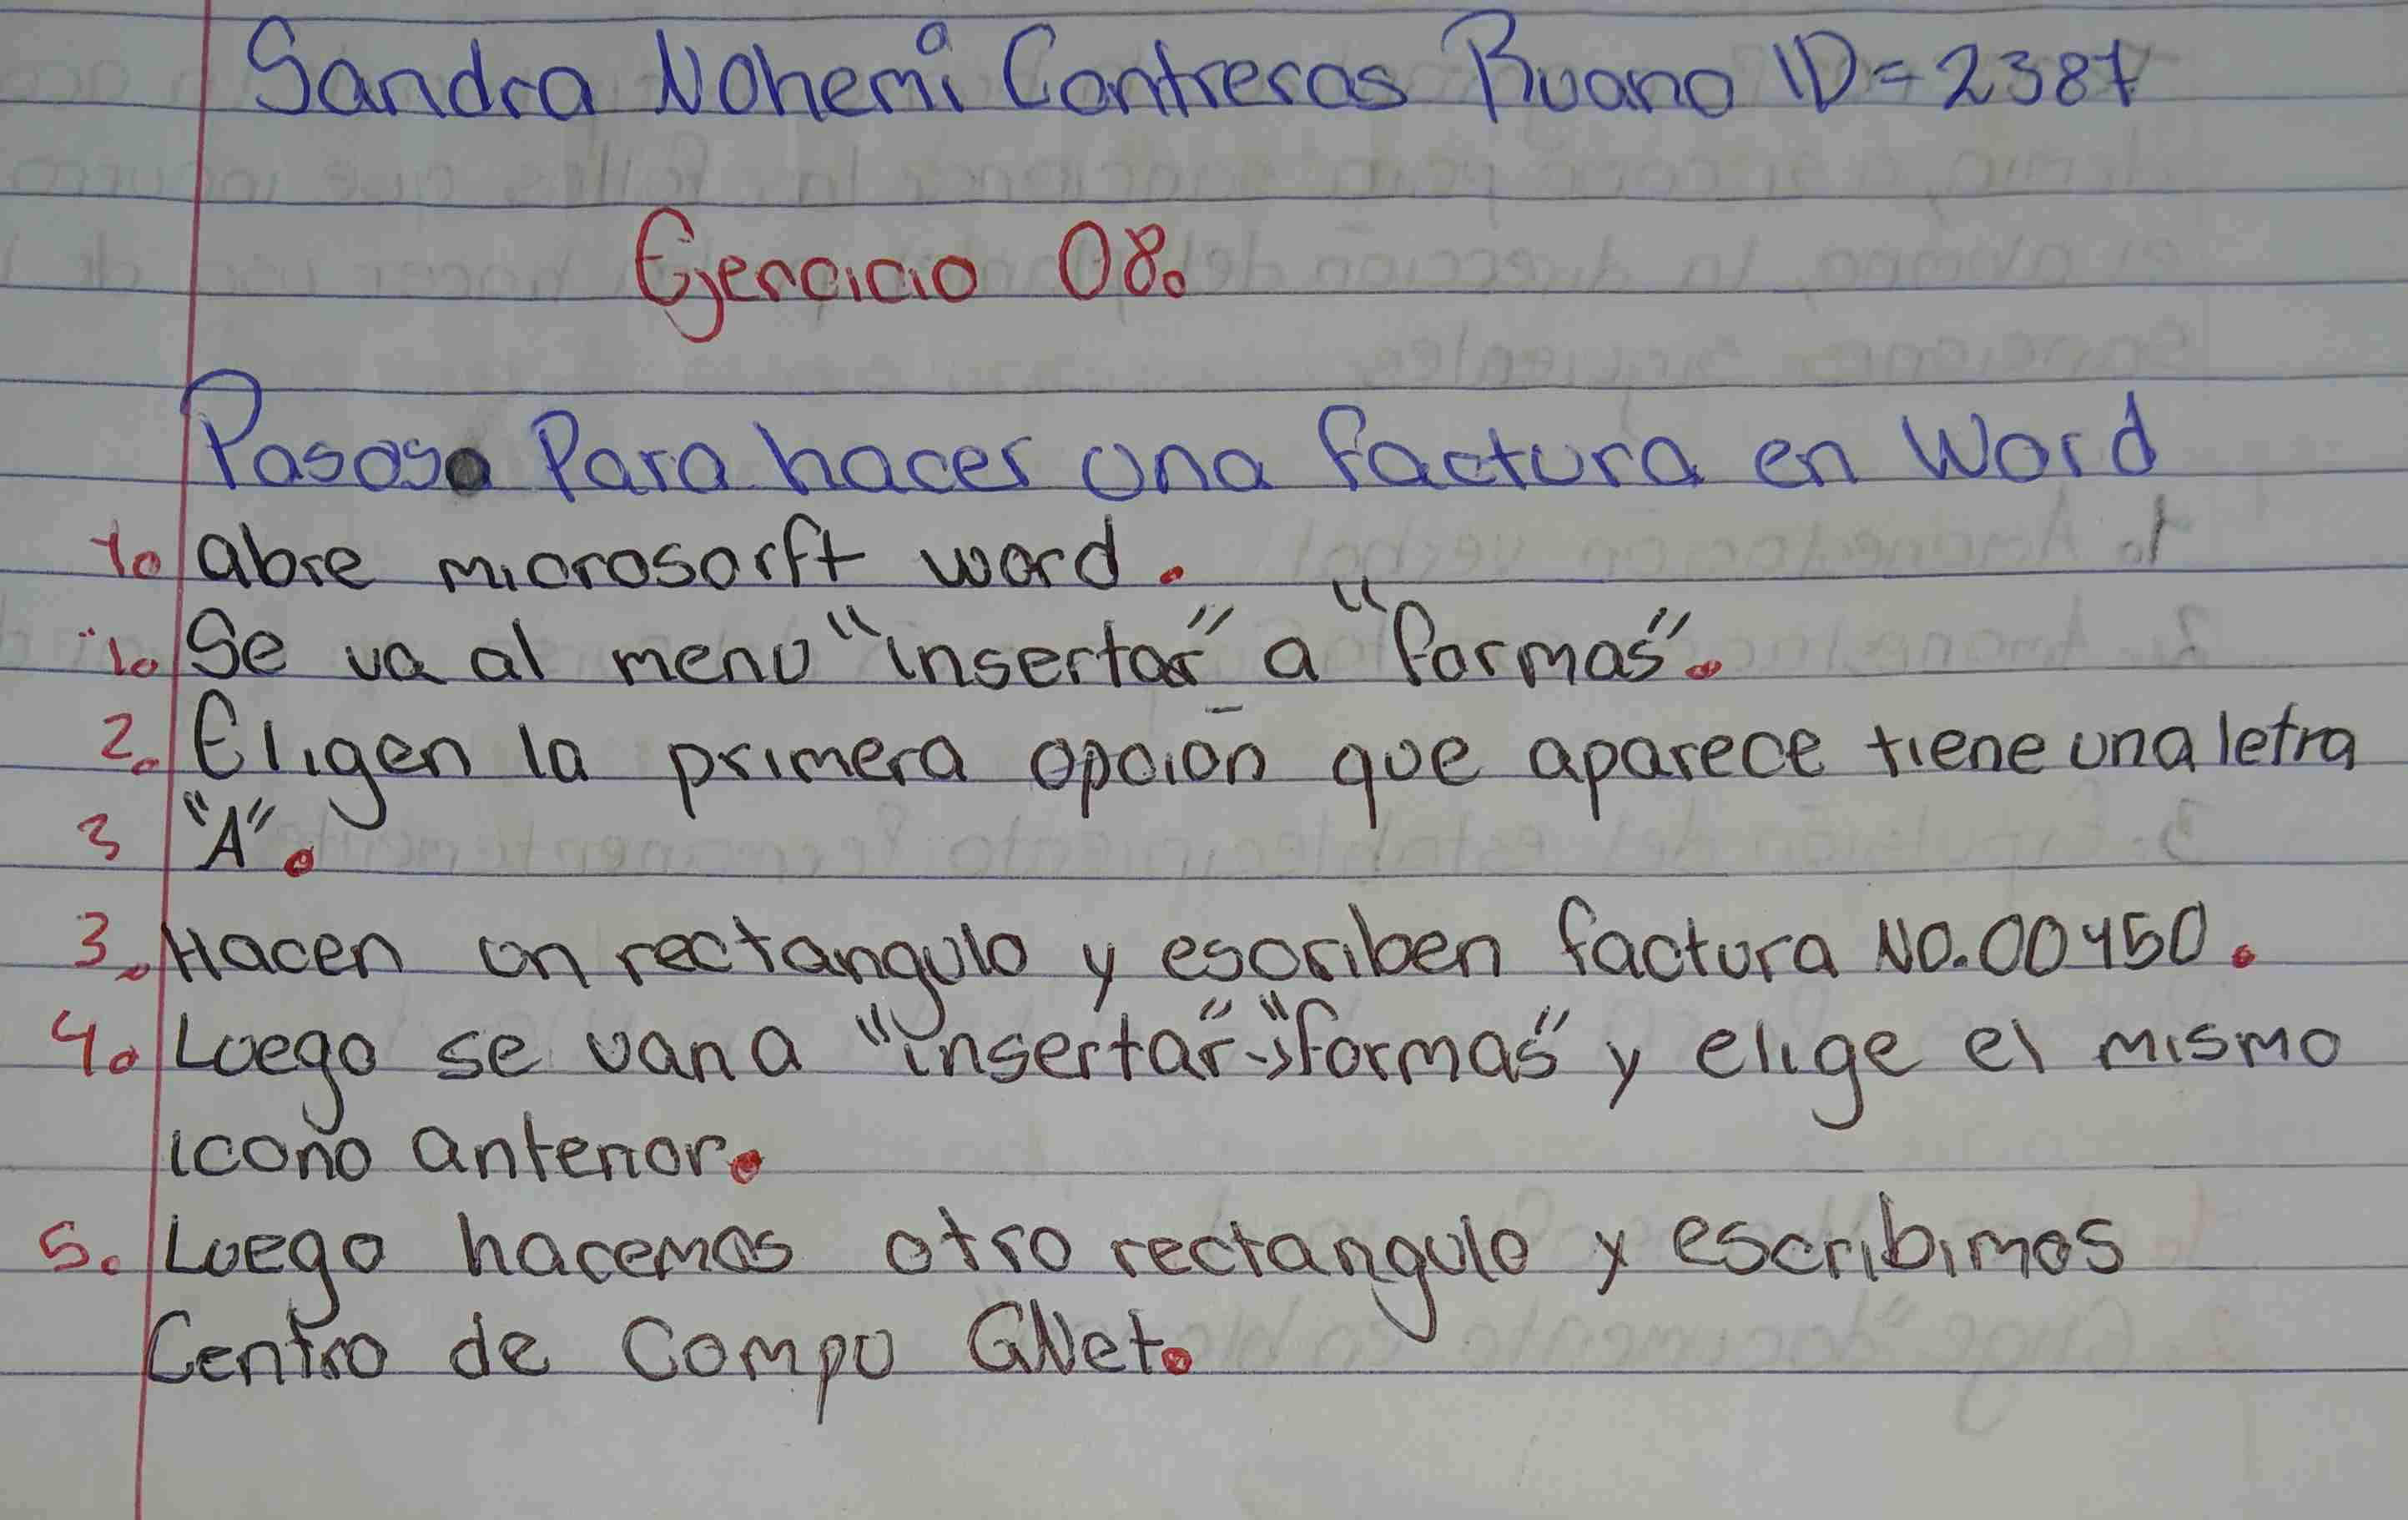 Sandra Nohemi Contreras Ruano ID=2387
Ejercicio 08.
Pasos Para hacer una factura en Word
1. abre microsorft word.
1. Se va al menu "insertar" a "formas".
2. Eligen la primera opción que aparece tiene una letra
3 "A".
3. Hacen un rectangulo y escriben factura NO.00450.
4. Luego se van a "insertar"->"formas" y elige el mismo
icono anterior.
5. Luego hacemos otro rectangulo y escribimos
Centro de Compu GNet.